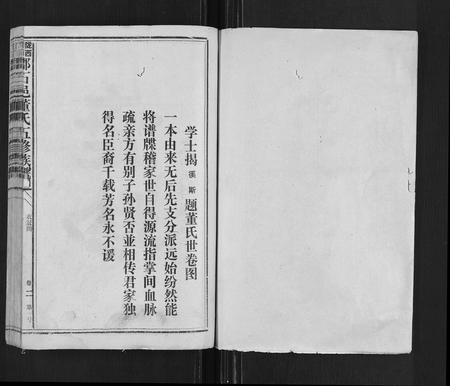 学士揭徯斯题董氏世卷图
一本由来无后先支分派远始纷然能
将谱牒稽家世自得源流指掌间血脉
疏亲方有别子孙贤否並相传君家独
得名臣裔千载芳名永不谖
陇西
都古邑董氏五修族谱
卷二